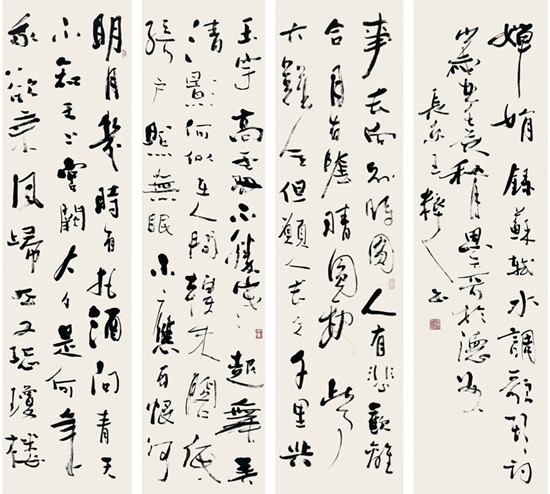 明月幾時有把酒問青天
不知天上宮闕今夕是何年
我欲乘風歸去又恐瓊樓
玉宇高處不勝寒起舞弄
清影何似在人間轉朱閣低
綺戶照無眠不應有恨何
事長向別時圓人有悲歡離
合月有陰晴圓缺此事
古難全但願人長久千里共
嬋娟錄蘇軾水調歌頭詞
秋月於德
長安王書